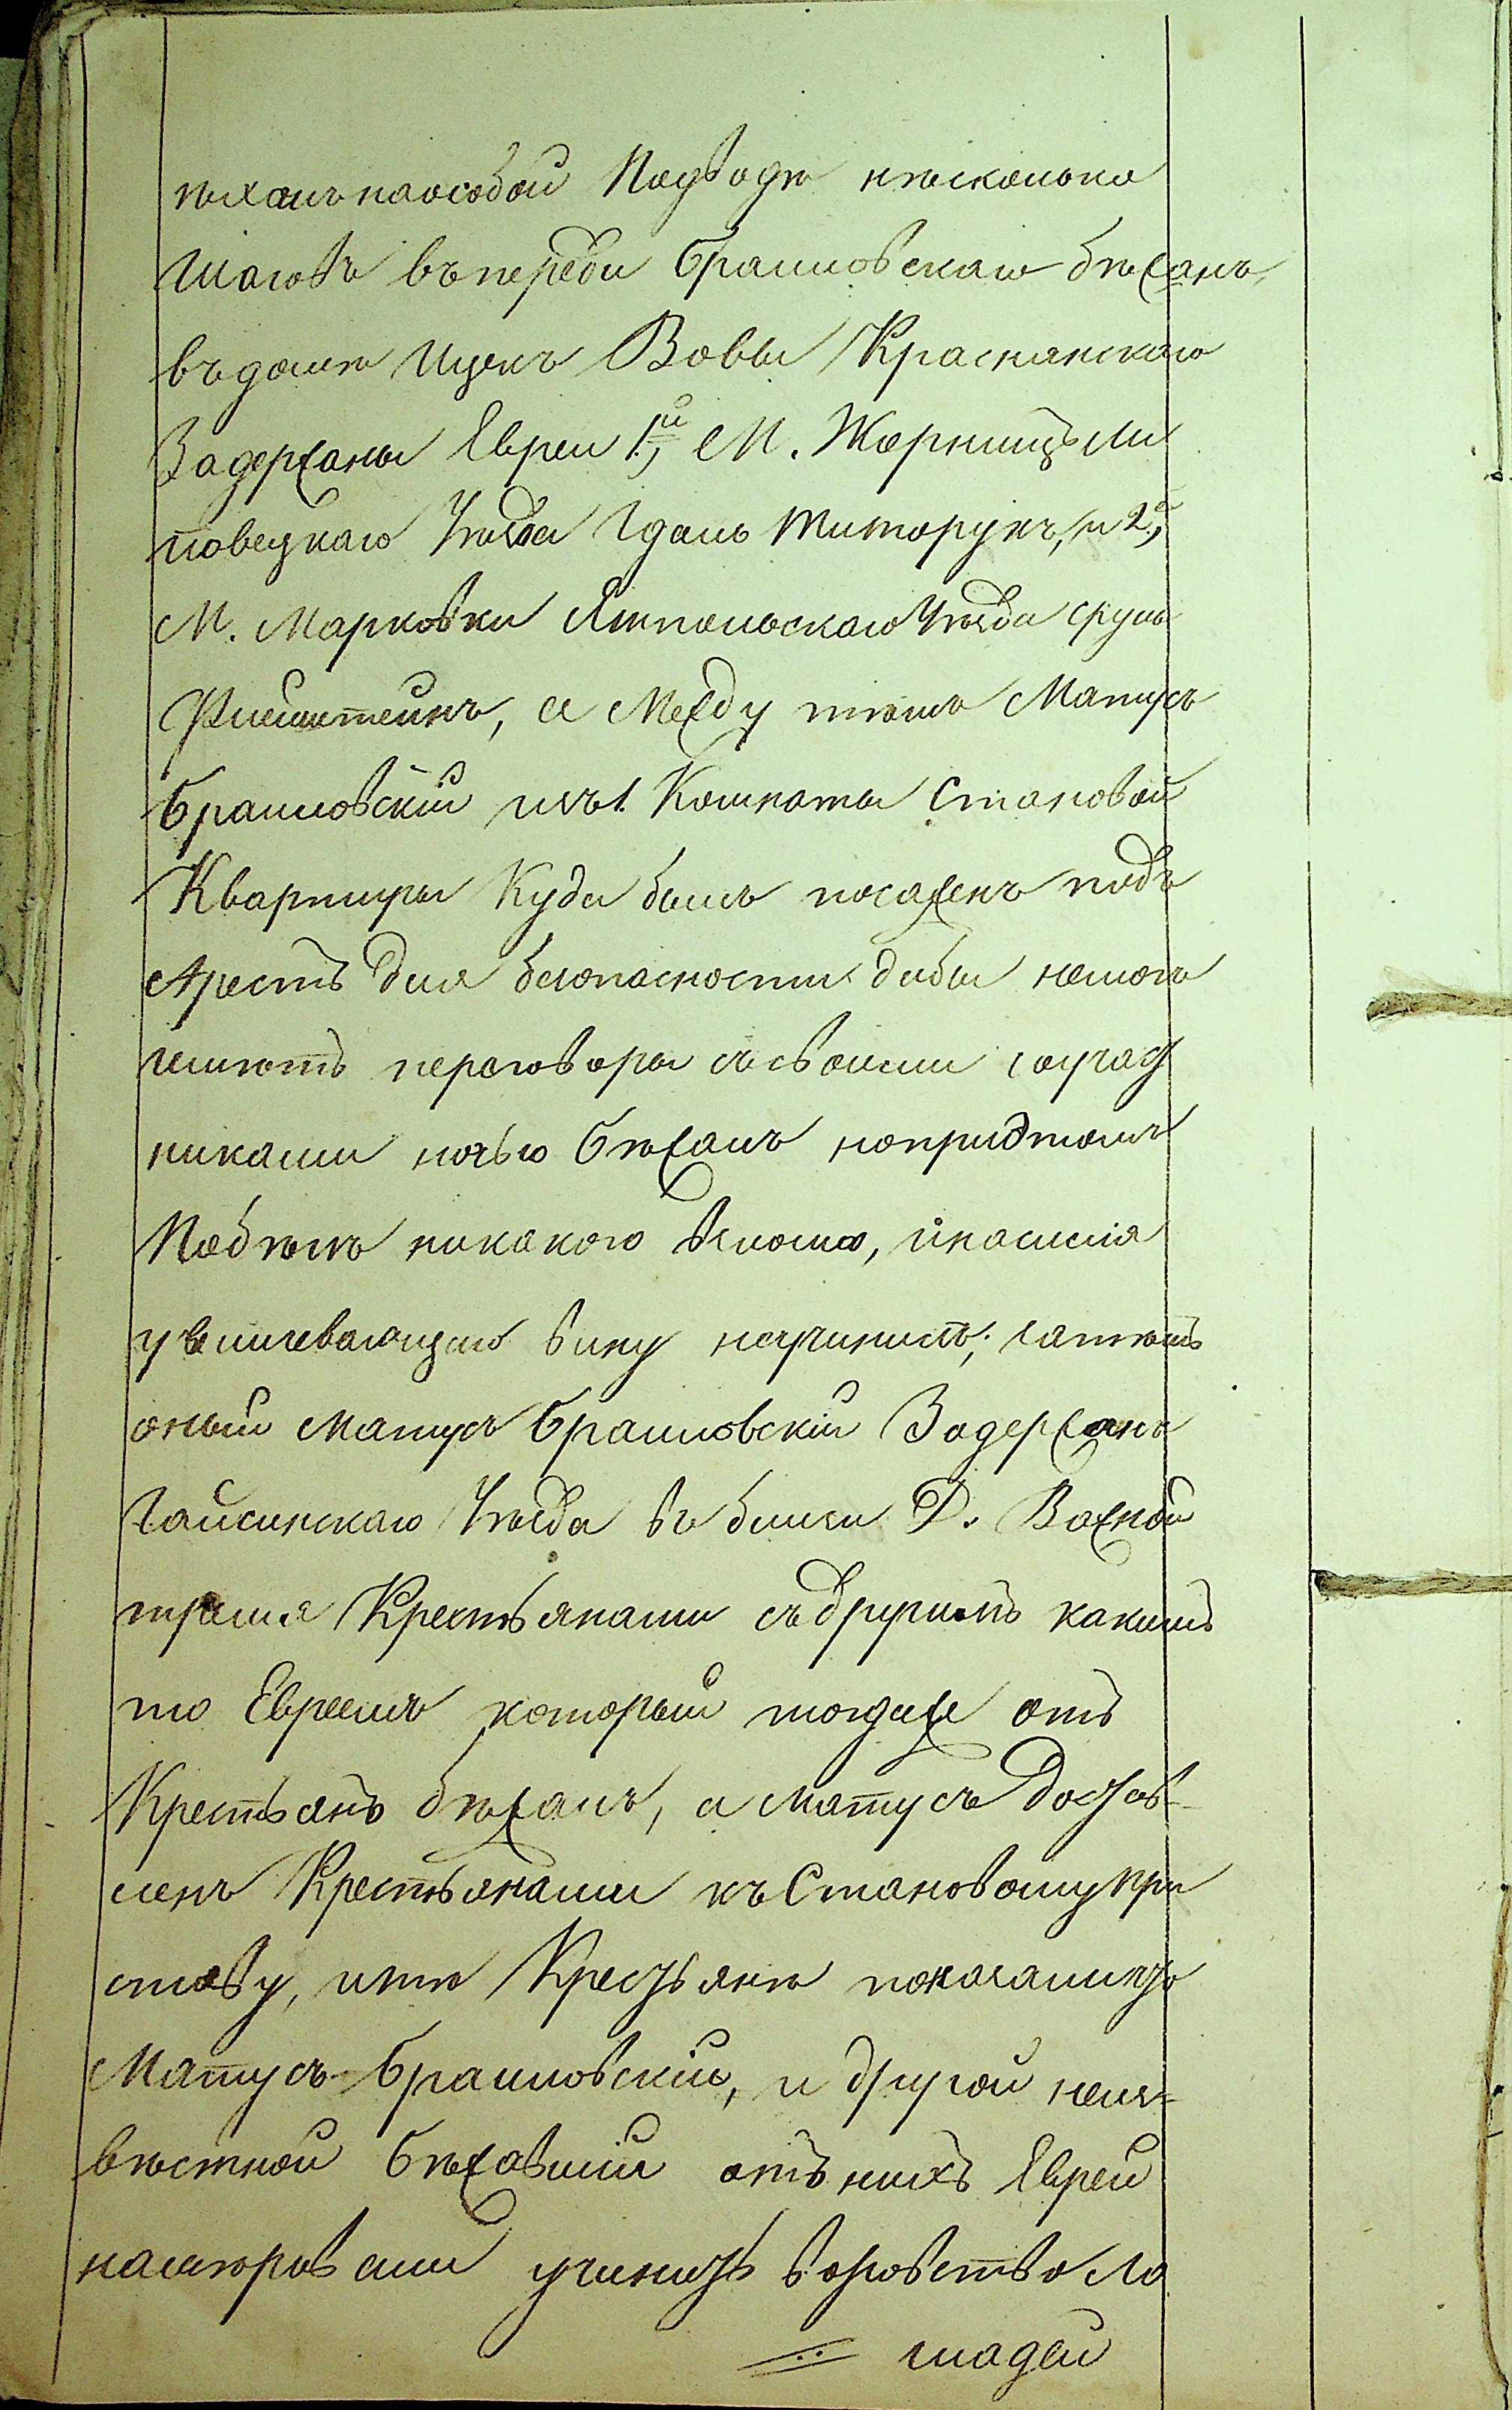 ѣхалъ наособой Подводѣ нѣсколько
шаговъ въпереди Браиловскаго бѣжалъ,
въ домѣ Ицекъ Вовы Краснянскаго
Задержаны Евреи 1й, М. Жорницъ Ли
повецкаго Уѣзда Гдаль Титорукъ, и 2й,
М. Марковки Ямпольскаго Уѣзда Сруль
Флешштейнъ, а Между тѣмъ Матусъ
Браиловскій изъ 1. Комнаты Становой
Квартиры Куда былъ посаженъ подъ
Арестъ для безопасности дабы немогъ
имѣть переговоры съсвоими соучаст
никами ночью бѣжалъ нопридтомъ
Побѣгѣ никакого взлома, инасилія
увеличевающаго вину неучинилъ;
оный Матусъ Браиловскій Задержанъ
Гайсинскаго Уѣзда въ близи Д. Важной
тремя Крестьянами съдругимъ какимъ
то Евреемъ который тогдаже отъ
Крестьянъ бѣжалъ, а Матусъ достав-
ленъ Крестьянами къ Становому При
ставу, итѣ Крестьяне показали что
Матусъ Браиловскій, и другой неиз-
вѣстной бѣжавшій отъ нихъ Еврей
намѣровали учинить воровство ло
шадей